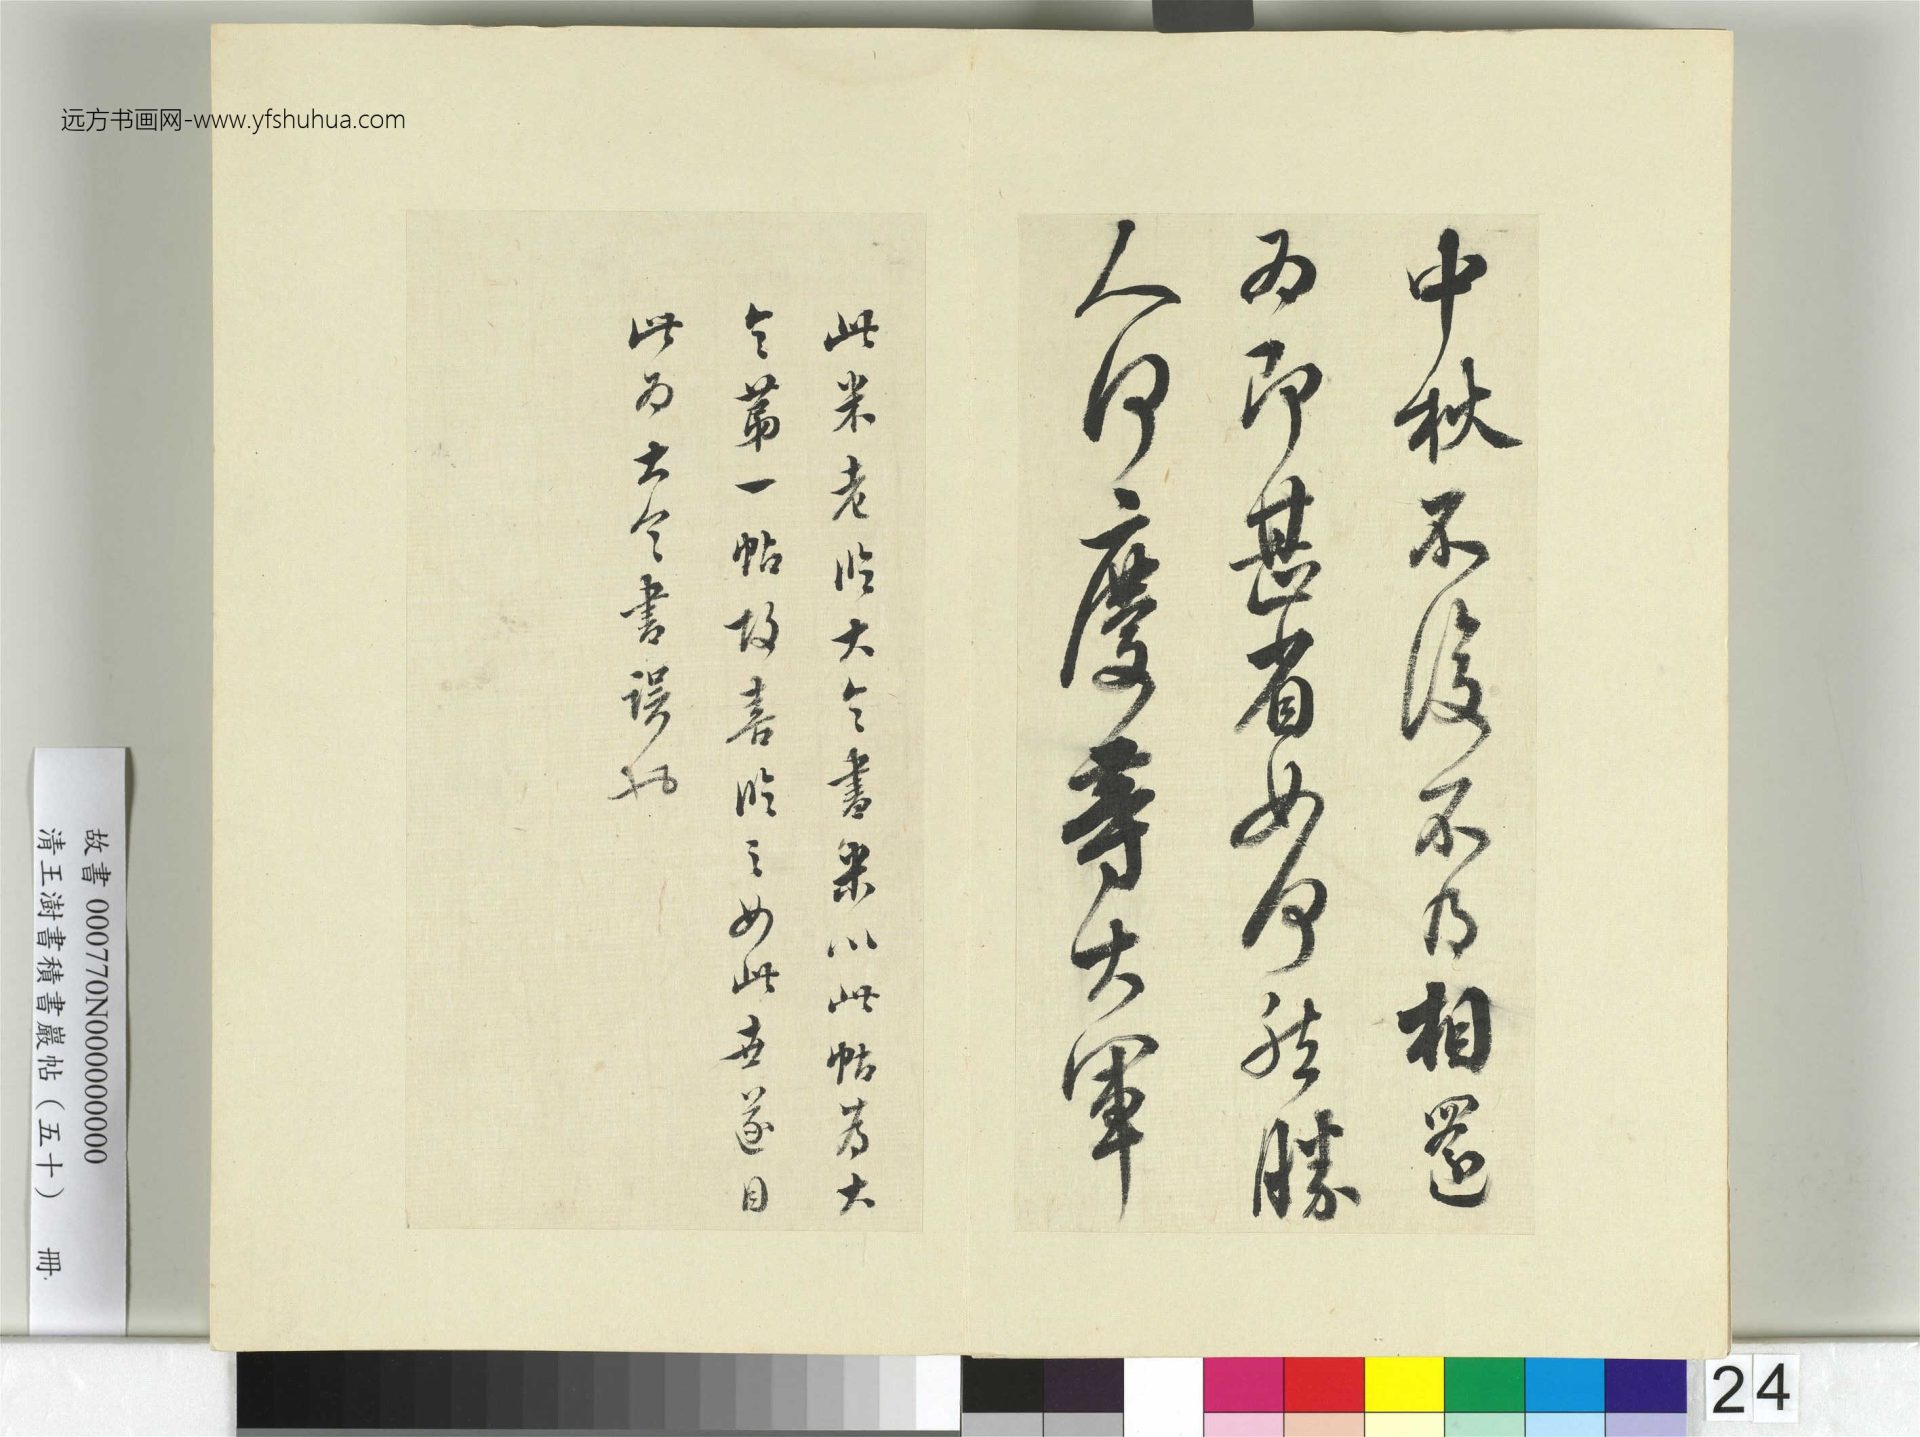 中秋不復不得相還
為即甚省如何然勝
人何慶等大軍
此米老臨大令書米以此帖為大
令第一帖故喜臨之如此世遂目
此為大令書誤也
远方书画网-www.yfshuhua.com
故書 000770N000000000
清王澍書積書巖帖(五十) 冊
24